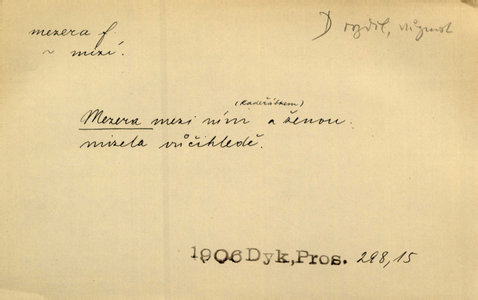 mezera f.
~ mizí.
D rozdíl, různost
(Kadeřábkem)
Mezera mezi ním a ženou
mizela vůčihledě.
1906 Dyk, Pros. 298,15